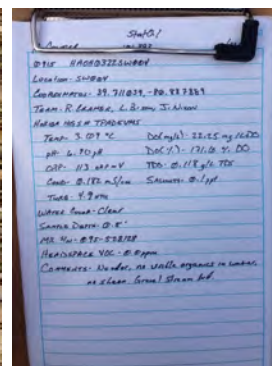 0915 HAOA0322SW004
Location - SW004
Coordinates - 39.711039, -80.887889
Team - R. Cramer, L. Brown J. Nixon
Horiba MESH
Temp - 3.109 °C DO(mg/L) - 22.25 mg/L DO
pH - 6.90 pH DO(%) - 171.10 % DO
ORP - 113 mV TDS - 0.118 g/L TDS
Cond - 0.182 mS/cm Salinity - 0.1 ppt
Turb - 4.9 NTU
Water Color - Clear
Sample Depth - 0.5"
Headspace VOC - 0.0 ppm
Comments - No odor, no visible organics in water,
no sheen. Gravel Stream bed.